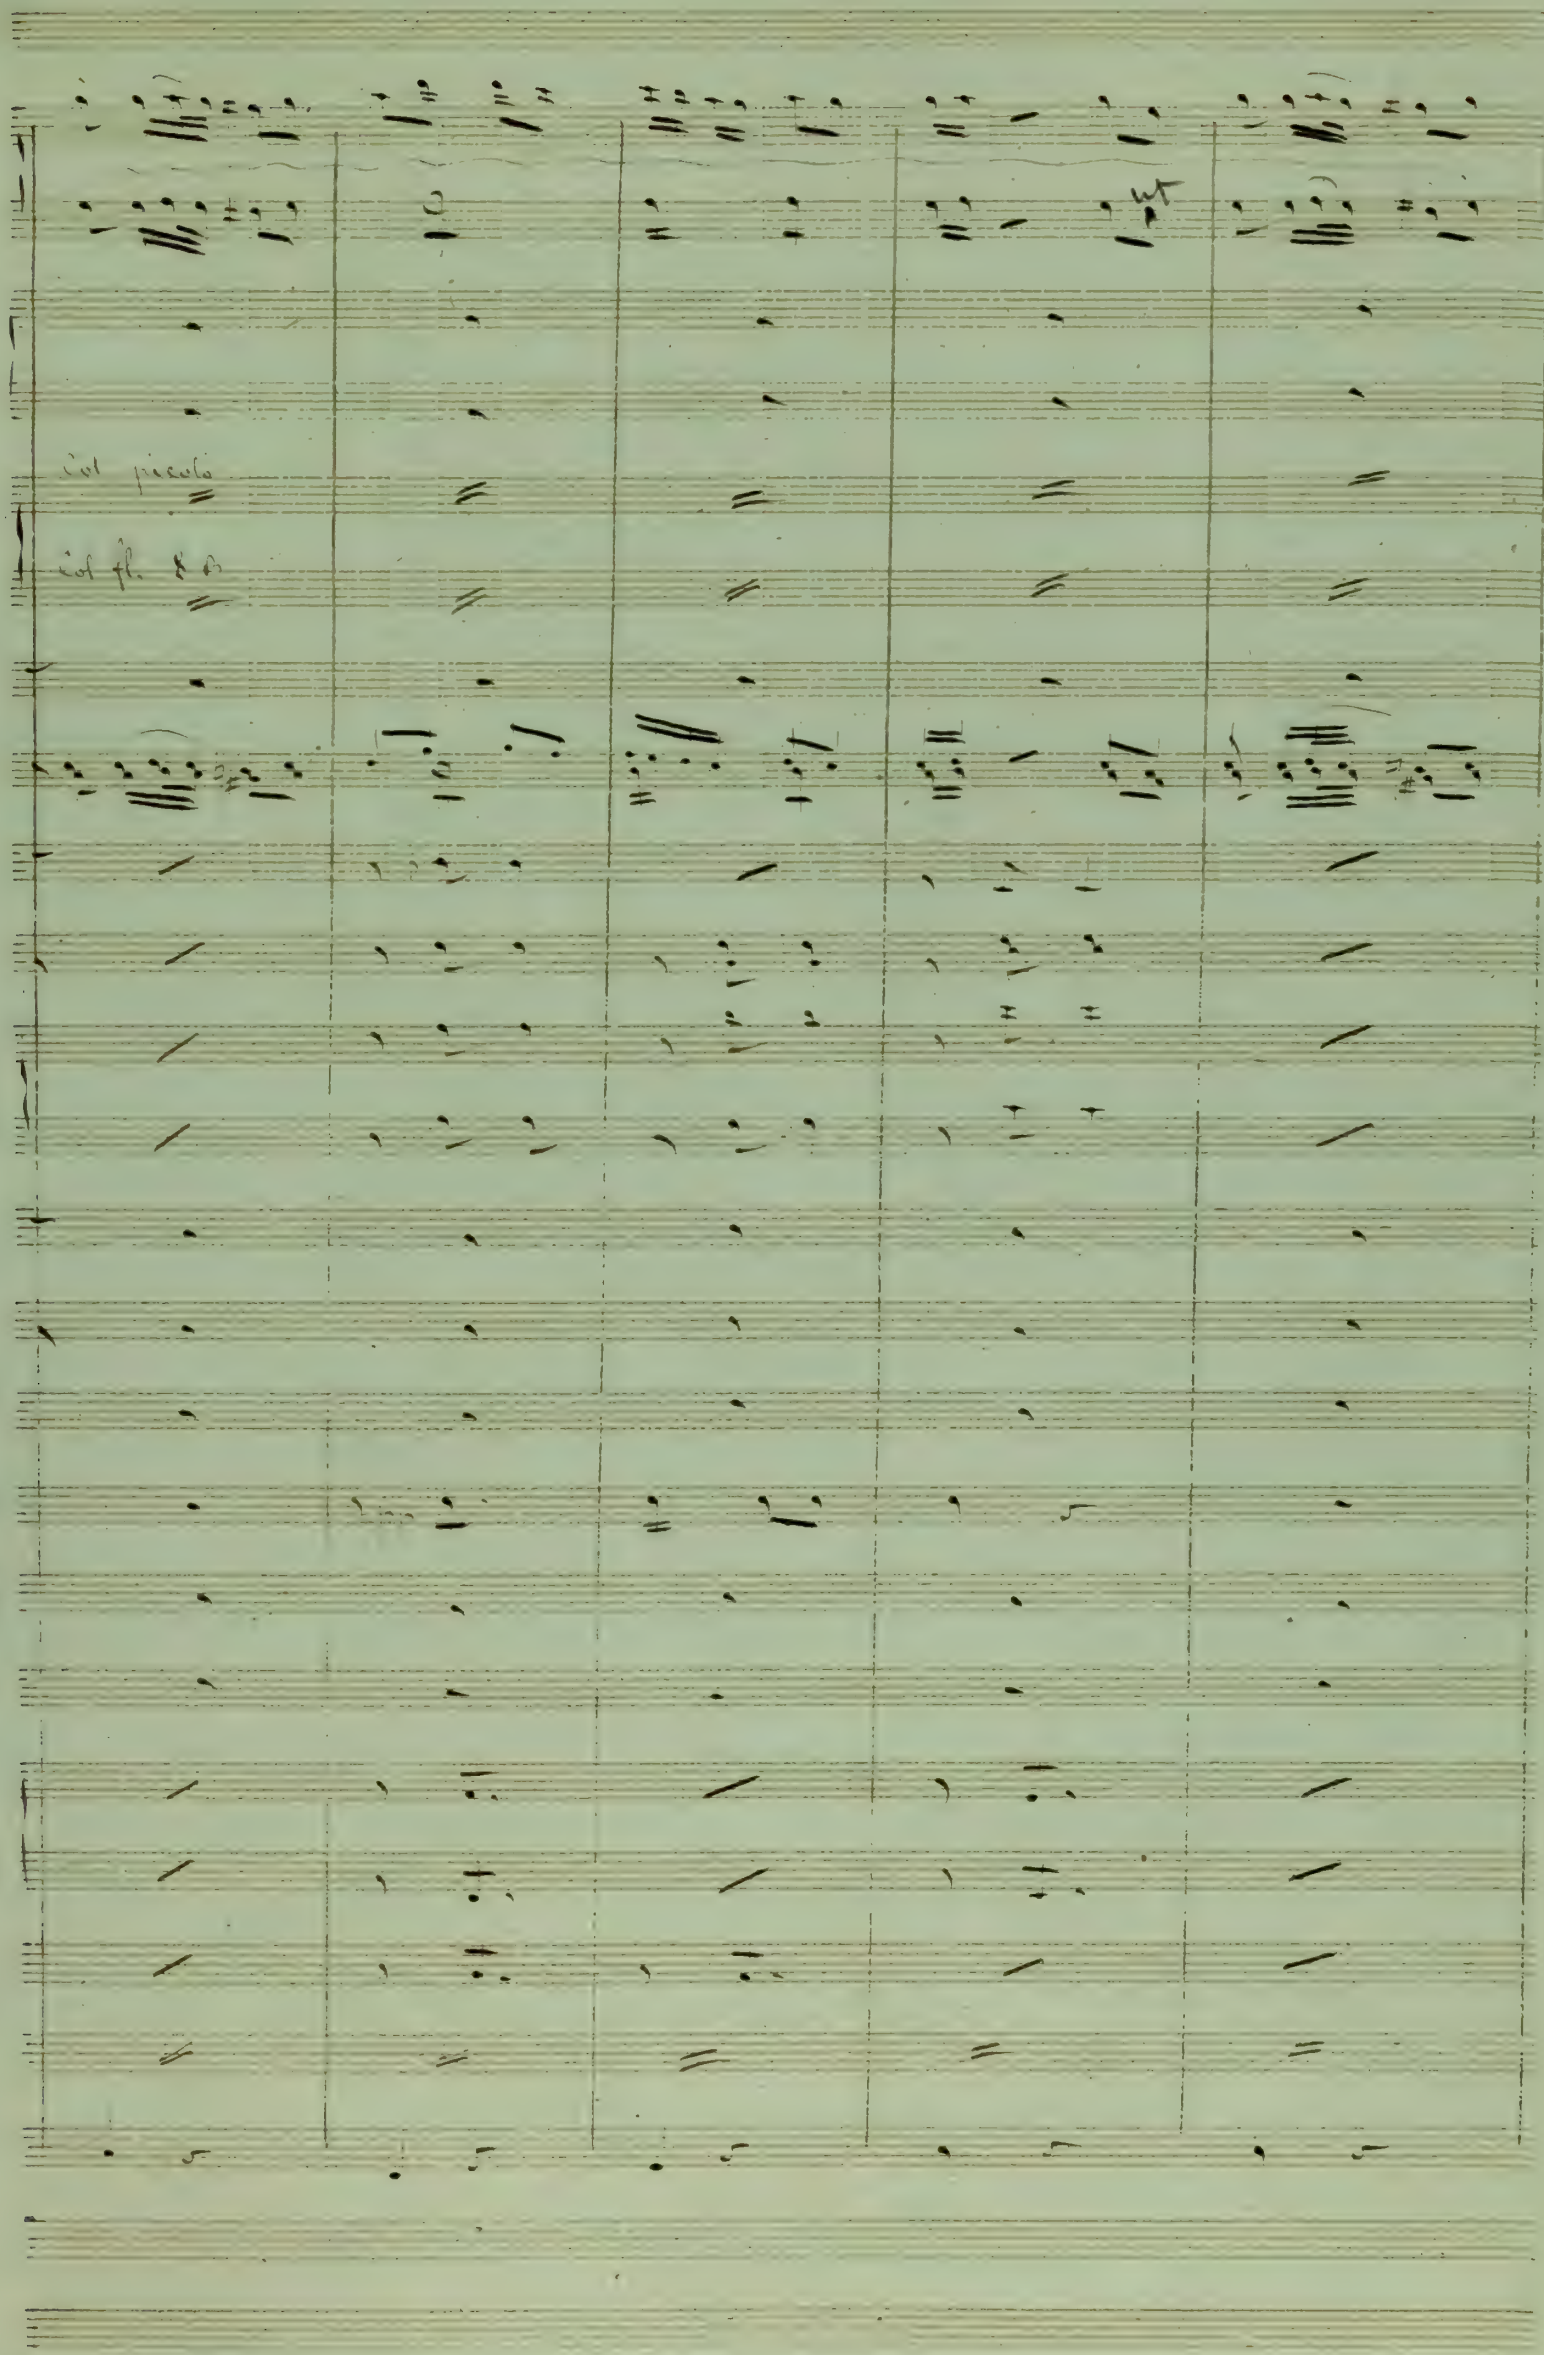 ut
col picolo
col fl.